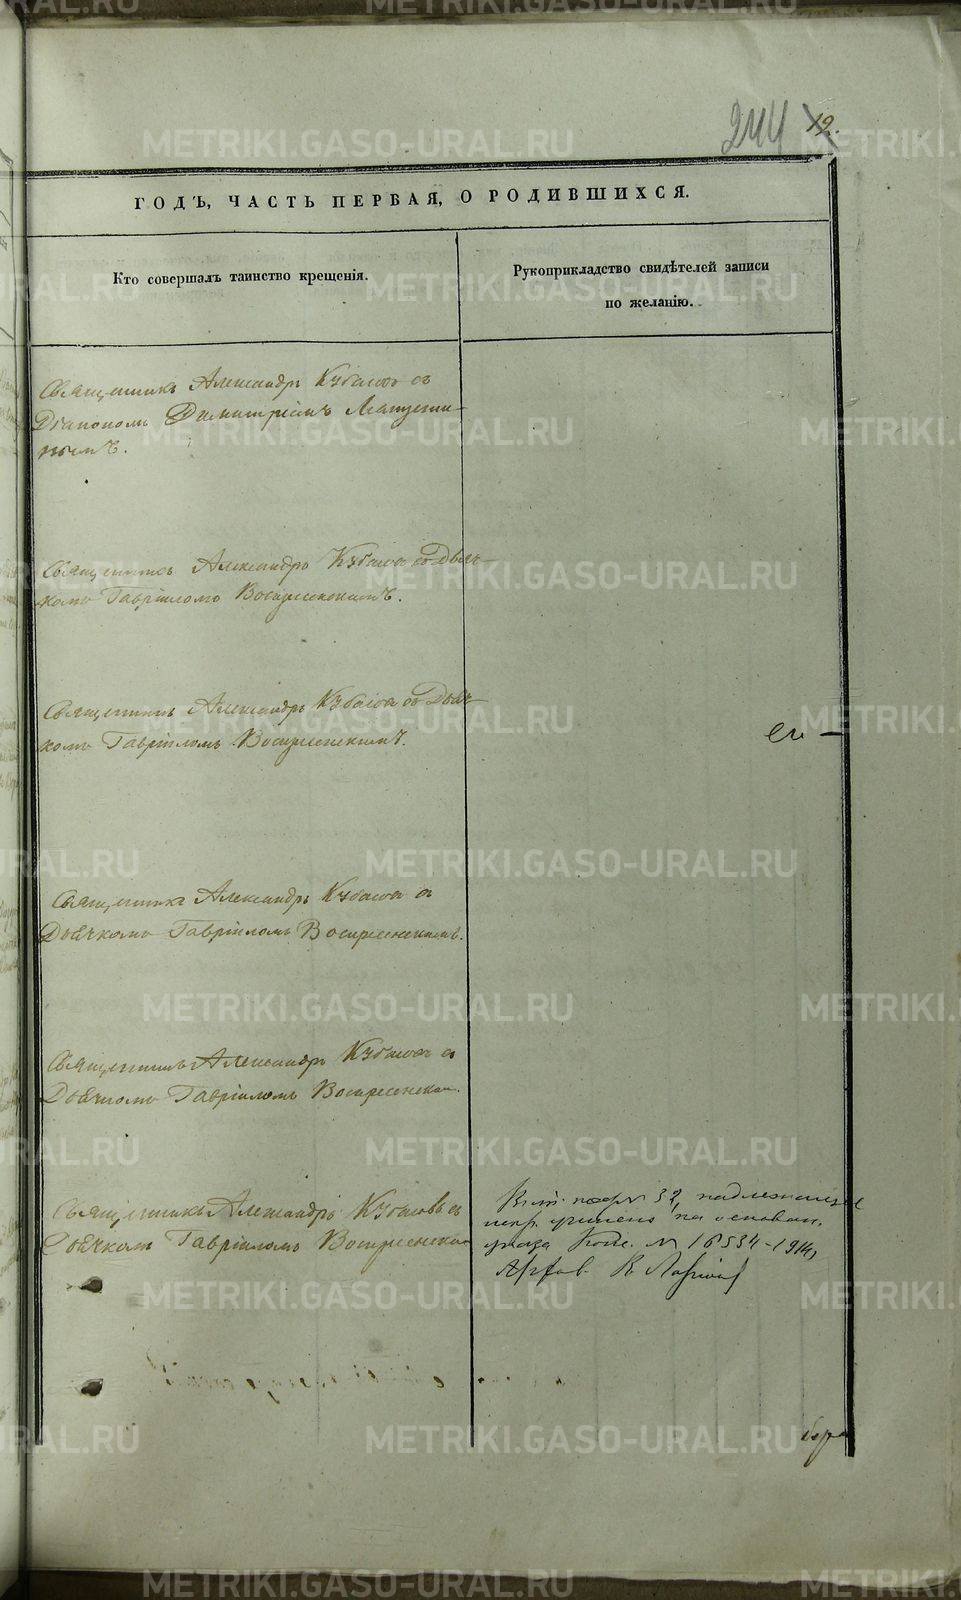 244 12.
ГОДЪ, ЧАСТЬ ПЕРВАЯ, О РОДИВШИХСЯ.
Кто совершалъ таинство крещенія.
Рукоприкладство свидѣтелей записи
по желанію.
Священникъ Александръ Кубасовъ съ
Діакономъ Димитріемъ
нымъ.
Священникъ Александръ Кубасовъ съ Дьяч-
комъ Гавріиломъ Воскресенскимъ.
Священникъ Александръ Кубасовъ съ Дьяч-
комъ Гавріиломъ Воскресенскимъ.
Священникъ Александръ Кубасовъ съ
Дьячкомъ Гавріиломъ Воскресенскимъ.
Священникъ Александръ Кубасовъ съ
Дьячкомъ Гавріиломъ Воскресенским.
Священникъ Александръ Кубасовъ съ
Дьячкомъ Гавріиломъ Воскресенским
32, надлежащее
на основан.
указа № 16534-1914,
METRIKI.GASO-URAL.RU